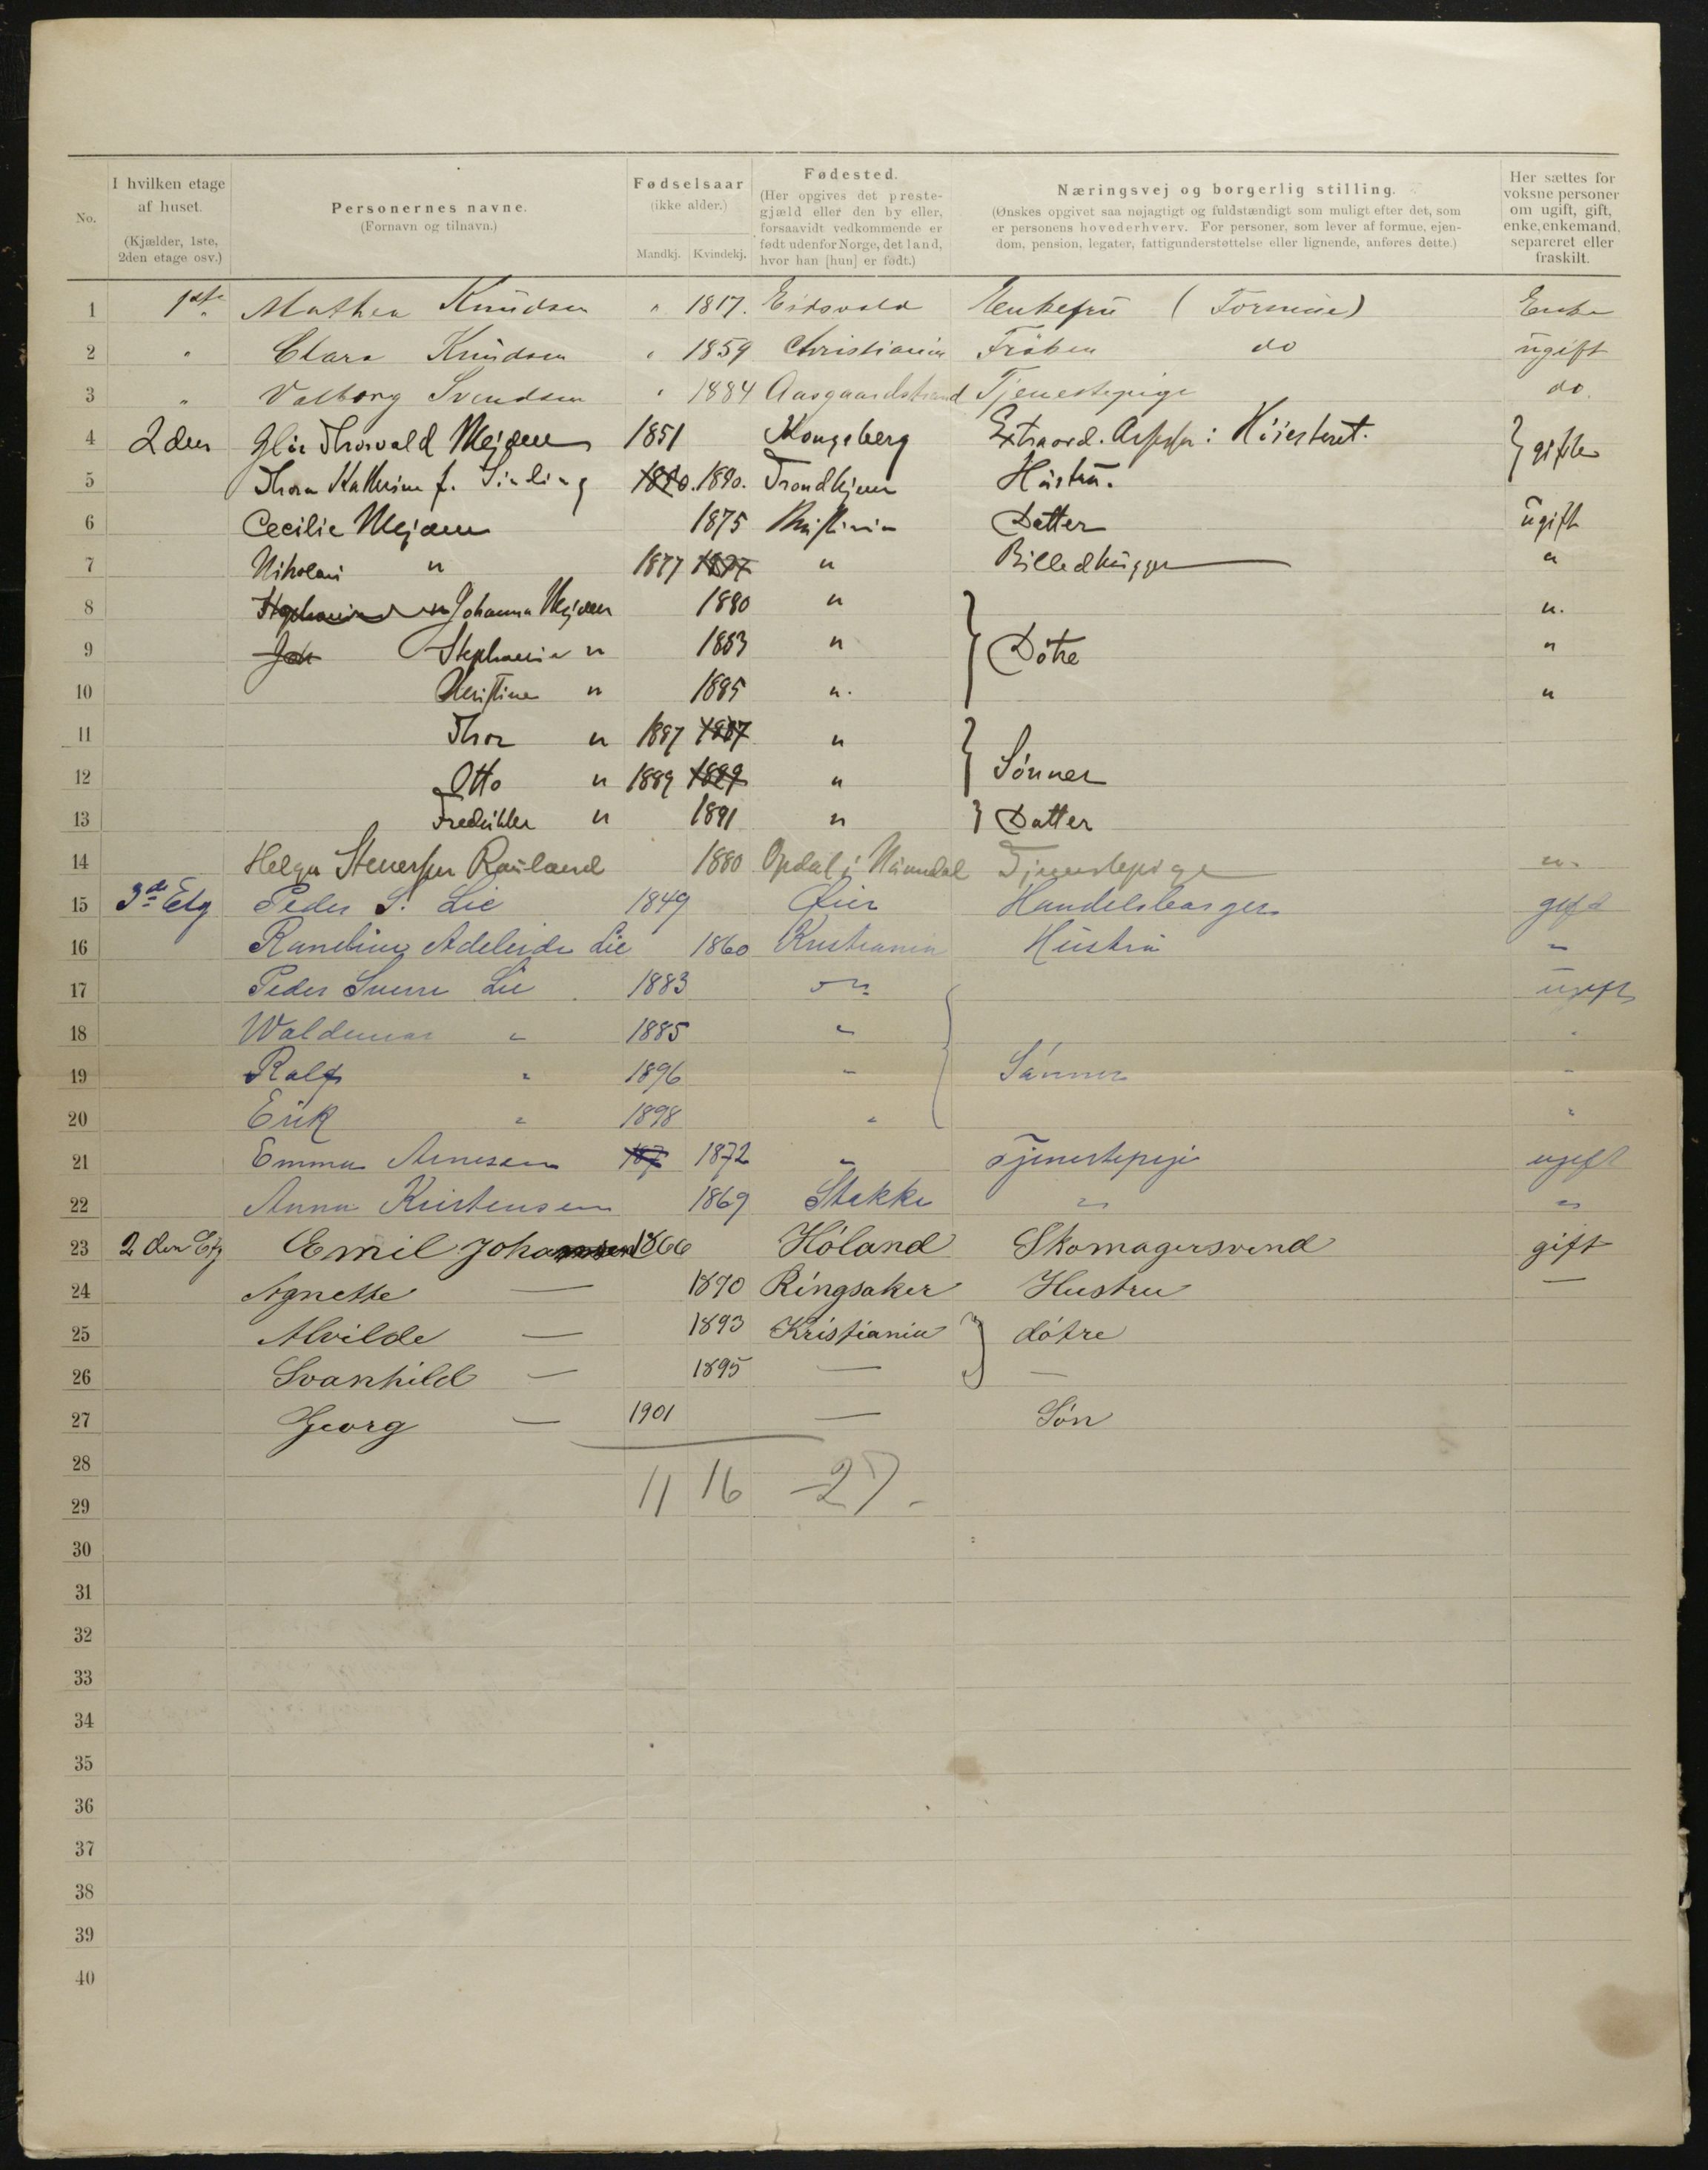 No. | I hvilken etage af huset. (Kjælder, 1ste, 2den etage osv.) | Personernes navne. (Fornavn og tilnavn.) | Fødselsaar (ikke alder.) Mandkj. Kvindekj. | Fødested. (Her opgives det prestegjæld eller den by eller, forsaavidt vedkommende er født udenfor Norge, det land, hvor han [hun] er født.) | Næringsvej og borgerlig stilling. (Ønskes opgivet saa nøjagtigt og fuldstændigt som muligt efter det, som er personens hovederhverv. For personer, som lever af formue, ejendom, pension, legater, fattigunderstøttelse eller lignende, anføres dette.) | Her sættes for voksne personer om ugift, gift, enke, enkemand, separeret eller fraskilt.
1 1ste Mathea Knudsen " 1817. Eidsvold Enkefru (Formue) Enke
2 " Clara Knudsen " 1859 Christiania Fröken do ugift
3 " Valborg Svendsen " 1884 Aasgaardstrand Tjenestepige do.
4 2den Thorvald Mejdell 1851 Kongsberg Extraord. Assessor i Höiesteret. } gifte
5 Thora Kathrine f. 1890. Trondhjem Hustru.
6 Cecilie Mejdell 1875 Kristiania Datter ugift
7 Nikolai " 1877 1877 " Billedhugger "
8 Stephanie " Johanna Mejdell 1880 " "
9 Joh Stephanie " 1883 " } Døtre "
10 Kristine " 1885 " "
11 Thor " 1887 1887 "
12 Otto " 1889 1889 " } Sønner
13 Fredrikke " 1891 " } Datter
14 Helga Stenersen Rauland 1880 Opdal i Numedal Tjenestepige "
15 3die Etg Peder S. Lie 1849 Øier Handelsborger gift
16 Adeleide Lie 1860 Kristiania Hustru "
17 Peder Sverre Lie 1883 " ugift
18 Waldemar " 1885 " "
19 Ralf " 1896 " } Sønner "
20 Erik " 1898 " "
21 Emma Arnesen 187 1872 " Tjenestepige ugift
22 Anna Kristensen 1869 Stokke " "
23 2den Etg Emil Johansen 1866 Høland Skomagersvend gift
24 Agnethe — 1870 Ringsaker Hustru —
25 Alvilde — 1893 Kristiania } døtre
26 Svanhild — 1895 — —
27 Georg — 1901 — Søn
28
11 16 - 27 -
29
30
31
32
33
34
35
36
37
38
39
40